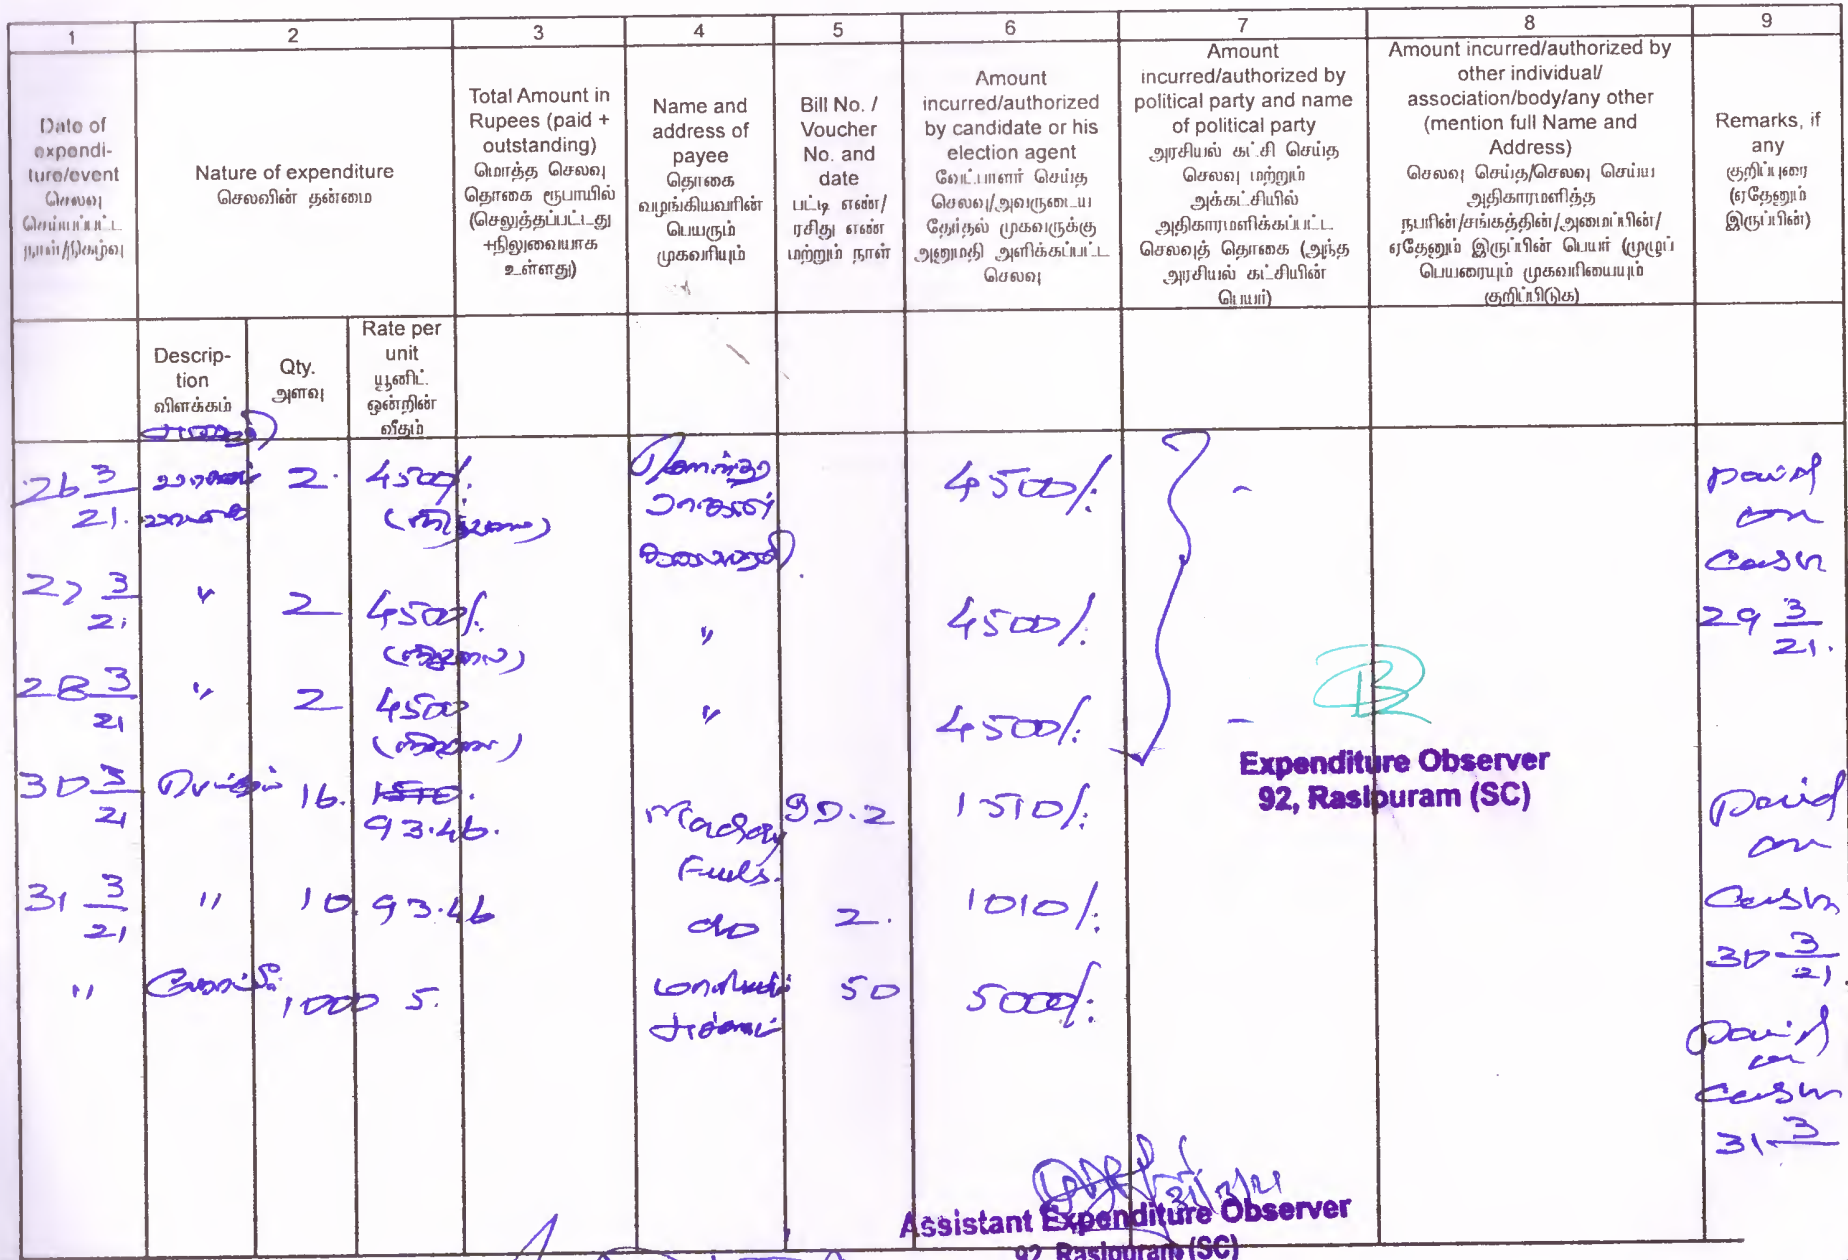 1 2 3 4 5 6 7 8 9
Date of
expendi-
ture/event
செலவு
செய்யப்பட்ட
நாள்/நிகழ்வு
Nature of expenditure
செலவின் தன்மை
Total Amount in
Rupees (paid +
outstanding)
மொத்த செலவு
தொகை ரூபாயில்
(செலுத்தப்பட்டது
+நிலுவையாக
உள்ளது)
Name and
address of
payee
தொகை
வழங்கியவரின்
பெயரும்
முகவரியும்
Bill No. /
Voucher
No. and
date
பட்டி எண்/
ரசிது எண்
மற்றும் நாள்
Amount
incurred/authorized
by candidate or his
election agent
வேட்பாளர் செய்த
செலவு/அவருடைய
தேர்தல் முகவருக்கு
அனுமதி அளிக்கப்பட்ட
செலவு
Amount
incurred/authorized by
political party and name
of political party
அரசியல் கட்சி செய்த
செலவு மற்றும்
அக்கட்சியில்
அதிகாரமளிக்கப்பட்ட
செலவுத் தொகை (அந்த
அரசியல் கட்சியின்
பெயர்)
Amount incurred/authorized by
other individual/
association/body/any other
(mention full Name and
Address)
செலவு செய்த/செலவு செய்ய
அதிகாரமளித்த
நபரின்/சங்கத்தின்/அமைப்பின்/
ஏதேனும் இருப்பின் பெயர் (முழுப்
பெயரையும் முகவரியையும்
குறிப்பிடுக)
Remarks, if
any
குறிப்புரை
(ஏதேனும்
இருப்பின்)
Descrip-
tion
விளக்கம்
Qty.
அளவு
Rate per
unit
யூனிட்
ஒன்றின்
வீதம்
26 3/21. 2. 4500/. 4500/. -
27 3/21 " 2 4500/. " 4500/.
28 3/21 " 2 4500 " 4500/. -
paid
on
cash
29 3/21.
Expenditure Observer
92, Rasipuram (SC)
30 3/21 16. 1510. 93.46. Fuels. 1510/.
31 3/21 " 10 93.46 do 2. 1010/.
paid
on
cash
30 3/21.
" 1000 5. 50 5000/.
paid
on
cash
31 3
31/3/21
Assistant Expenditure Observer
92, Rasipuram (SC)